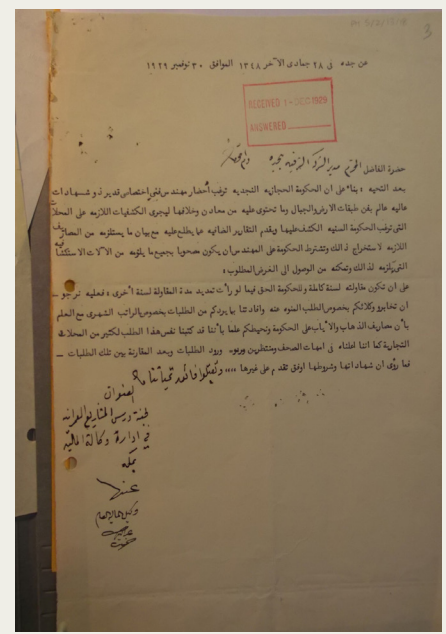 عن جده فى ٢٨ جمادى الآخر ١٣٤٨ الموافق ٣٠ نوفمبر ١٩٢٩
3
RECEIVED 1-DEC 1929
ANSWERED
حضرة الفاضل المحترم مدير الشركة الشرقية بجده
بعد التحيه ، بناء على ان الحكومة الحجازيه النجديه ترغب أحضار مهندس فنى اختصاصى قدير ذو شهادات
عاليه عالم بفن طبقات الارض والجبال وما تحتوى عليه من معادن وخلافها ليجرى الكشفيات اللازمه على المحلات
التى ترغب الحكومة السنيه الكشف عليها ويقدم التقارير الضافيه عما يطلع عليه مع بيان ما يستلزمه من المصاريف
اللازمه لاستخراج ذالك وتشترط الحكومة على المهندس ان يكون مصحوبا بجميع ما يلزمه من الآلات الاستكشافيه
التى تلزمه لذالك وتمكنه من الوصول الى الغرض المطلوب ؛
على ان تكون مقاولته لسنة كاملة وللحكومة الحق فيما لو رأت تمديد مدة المقاولة لسنة أخرى ، فعليه نرجو
ان تخابرو وكلائكم بخصوص الطلب المنوه عنه وافادتنا بما يردكم من الطلبات بخصوص الراتب الشهرى مع العلم
بأن مصاريف الذهاب والاياب على الحكومة ونحيطكم علما بأننا قد كتبنا نفس هذا الطلب لكثير من المحلات
التجارية كما اننا اعلناه فى امهات الصحف ومنتظرين ورود الطلبات وبعد المقارنة بين تلك الطلبات
فما رؤى ان شهاداتها وشروطها اوفق تقدم على غيرها ،،،، وتفضلوا فائق تحياتنا
العنوان
لجنة درس المشاريع العمرانيه
في ادارة وكالة الماليه
بمكه
عنها